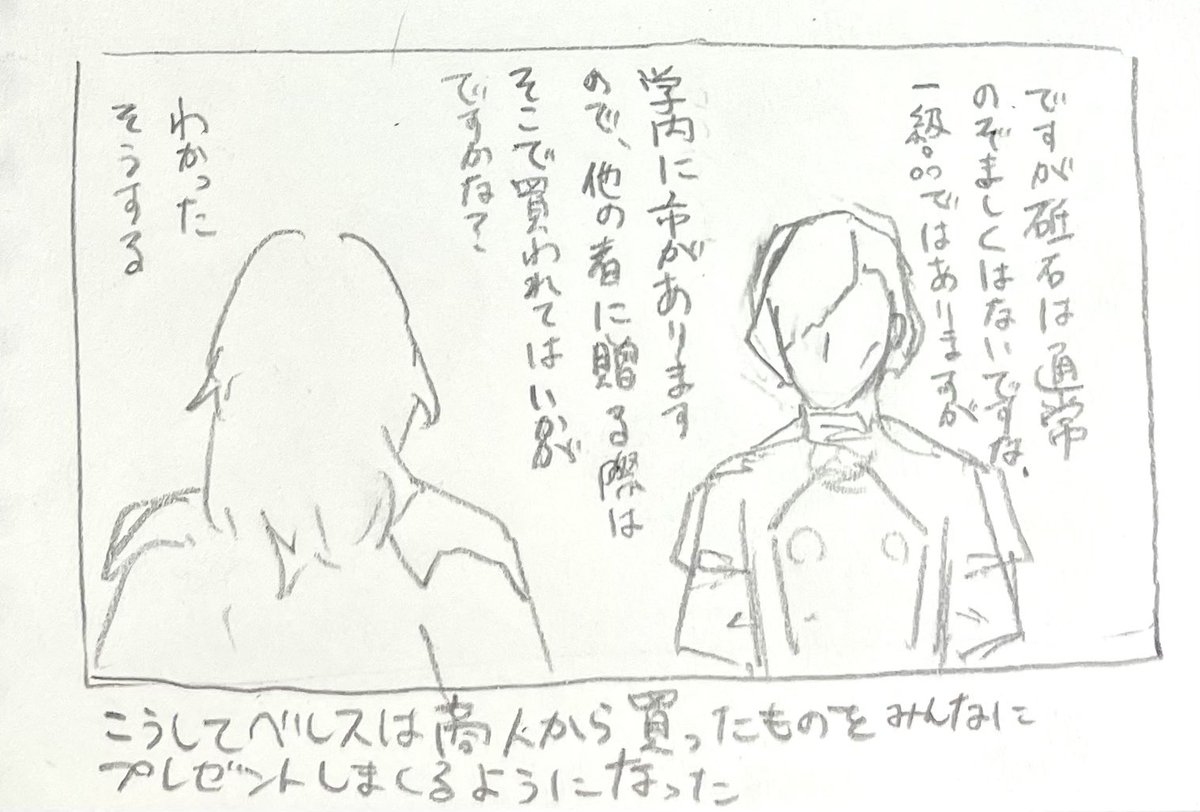 ですが砥石は通常
のぞましくはないですな、
一級品ではありますが
学内に市があります
ので、他の者に贈る際は
そこで買われてはいかが
ですかな?
わかった
そうする
こうしてベレスは商人から買ったものをみんなに
プレゼントしまくるようになった